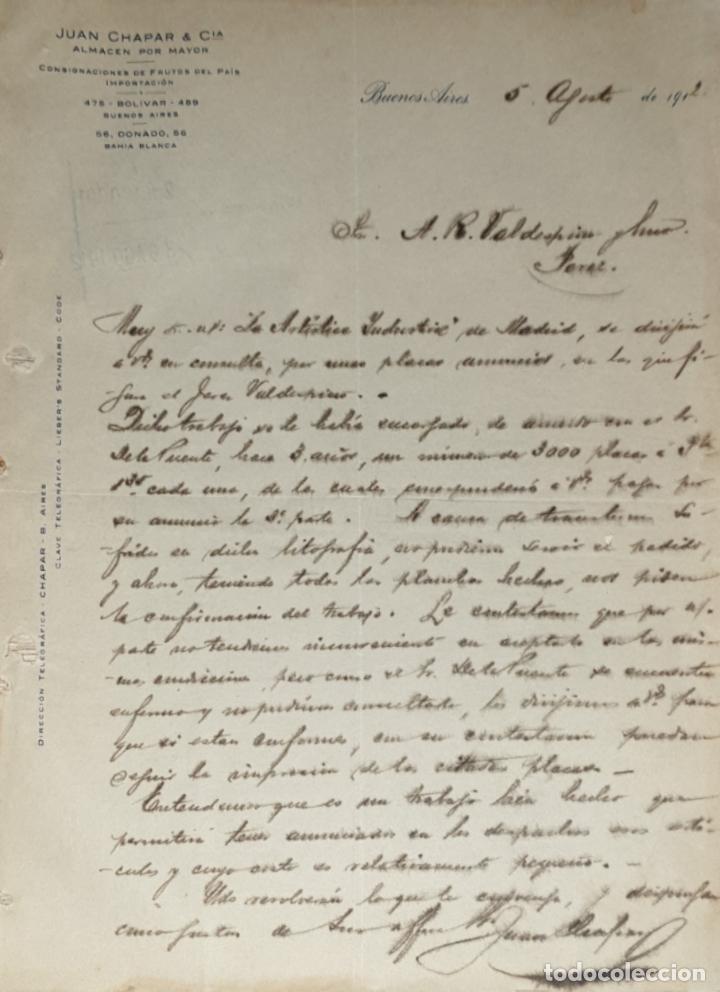 JUAN CHAPAR & CIA
ALMACEN POR MAYOR
CONSIGNACIONES DE FRUTOS DEL PAÍS
IMPORTACIÓN
475 - BOLIVAR - 489
BUENOS AIRES
56, DONADO, 56
BAHIA BLANCA
Buenos Aires 5 Agosto de 1912
DIRECCIÓN TELEGRÁFICA - CHAPAR - B. AIRES
CLAVE TELEGRÁFICA - LIEBER'S STANDARD - CODE
A. R. Valdespino y Hno.
Jerez.
Muy "La Artística Industrial" de Madrid, se dirigirá
a Vds en consulta, por unas placas anuncios, en las que fi-
gura el Jerez Valdespino.
Dicho trabajo se le había encargado, de acuerdo con el Sr.
De la Puente, hace 3 años, un número de 3000 placas á
cada una, de las cuales á Vds pagar por
su anuncio la 3ª parte. A causa de
en dicha litografía, no pudieron el pedido,
y ahora, teniendo todas las planchas hechas, nos piden
la confirmación del trabajo. Le contestamos que por n/
parte no tendríamos inconveniente en aceptarlo en las mis-
mas condiciones, pero como el Sr. De la Puente se encuentra
enfermo y no pudimos consultarlo, les dirigimos a Vds para
que si están conformes, con su contestación puedan
seguir la impresión de las citadas placas.
Entendemos que es un trabajo bien hecho que
permitirá tener anunciados en los despachos esos artí-
culos y cuyo costo es relativamente pequeño.
Uds resolverán lo que le convenga, y
como gusten de Juan Chapar
todocoleccion.net